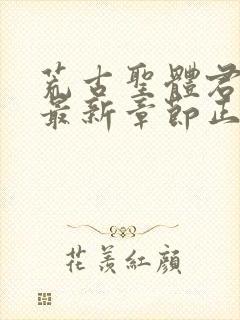 荒古聖體君
最新章節正
花羨紅顏